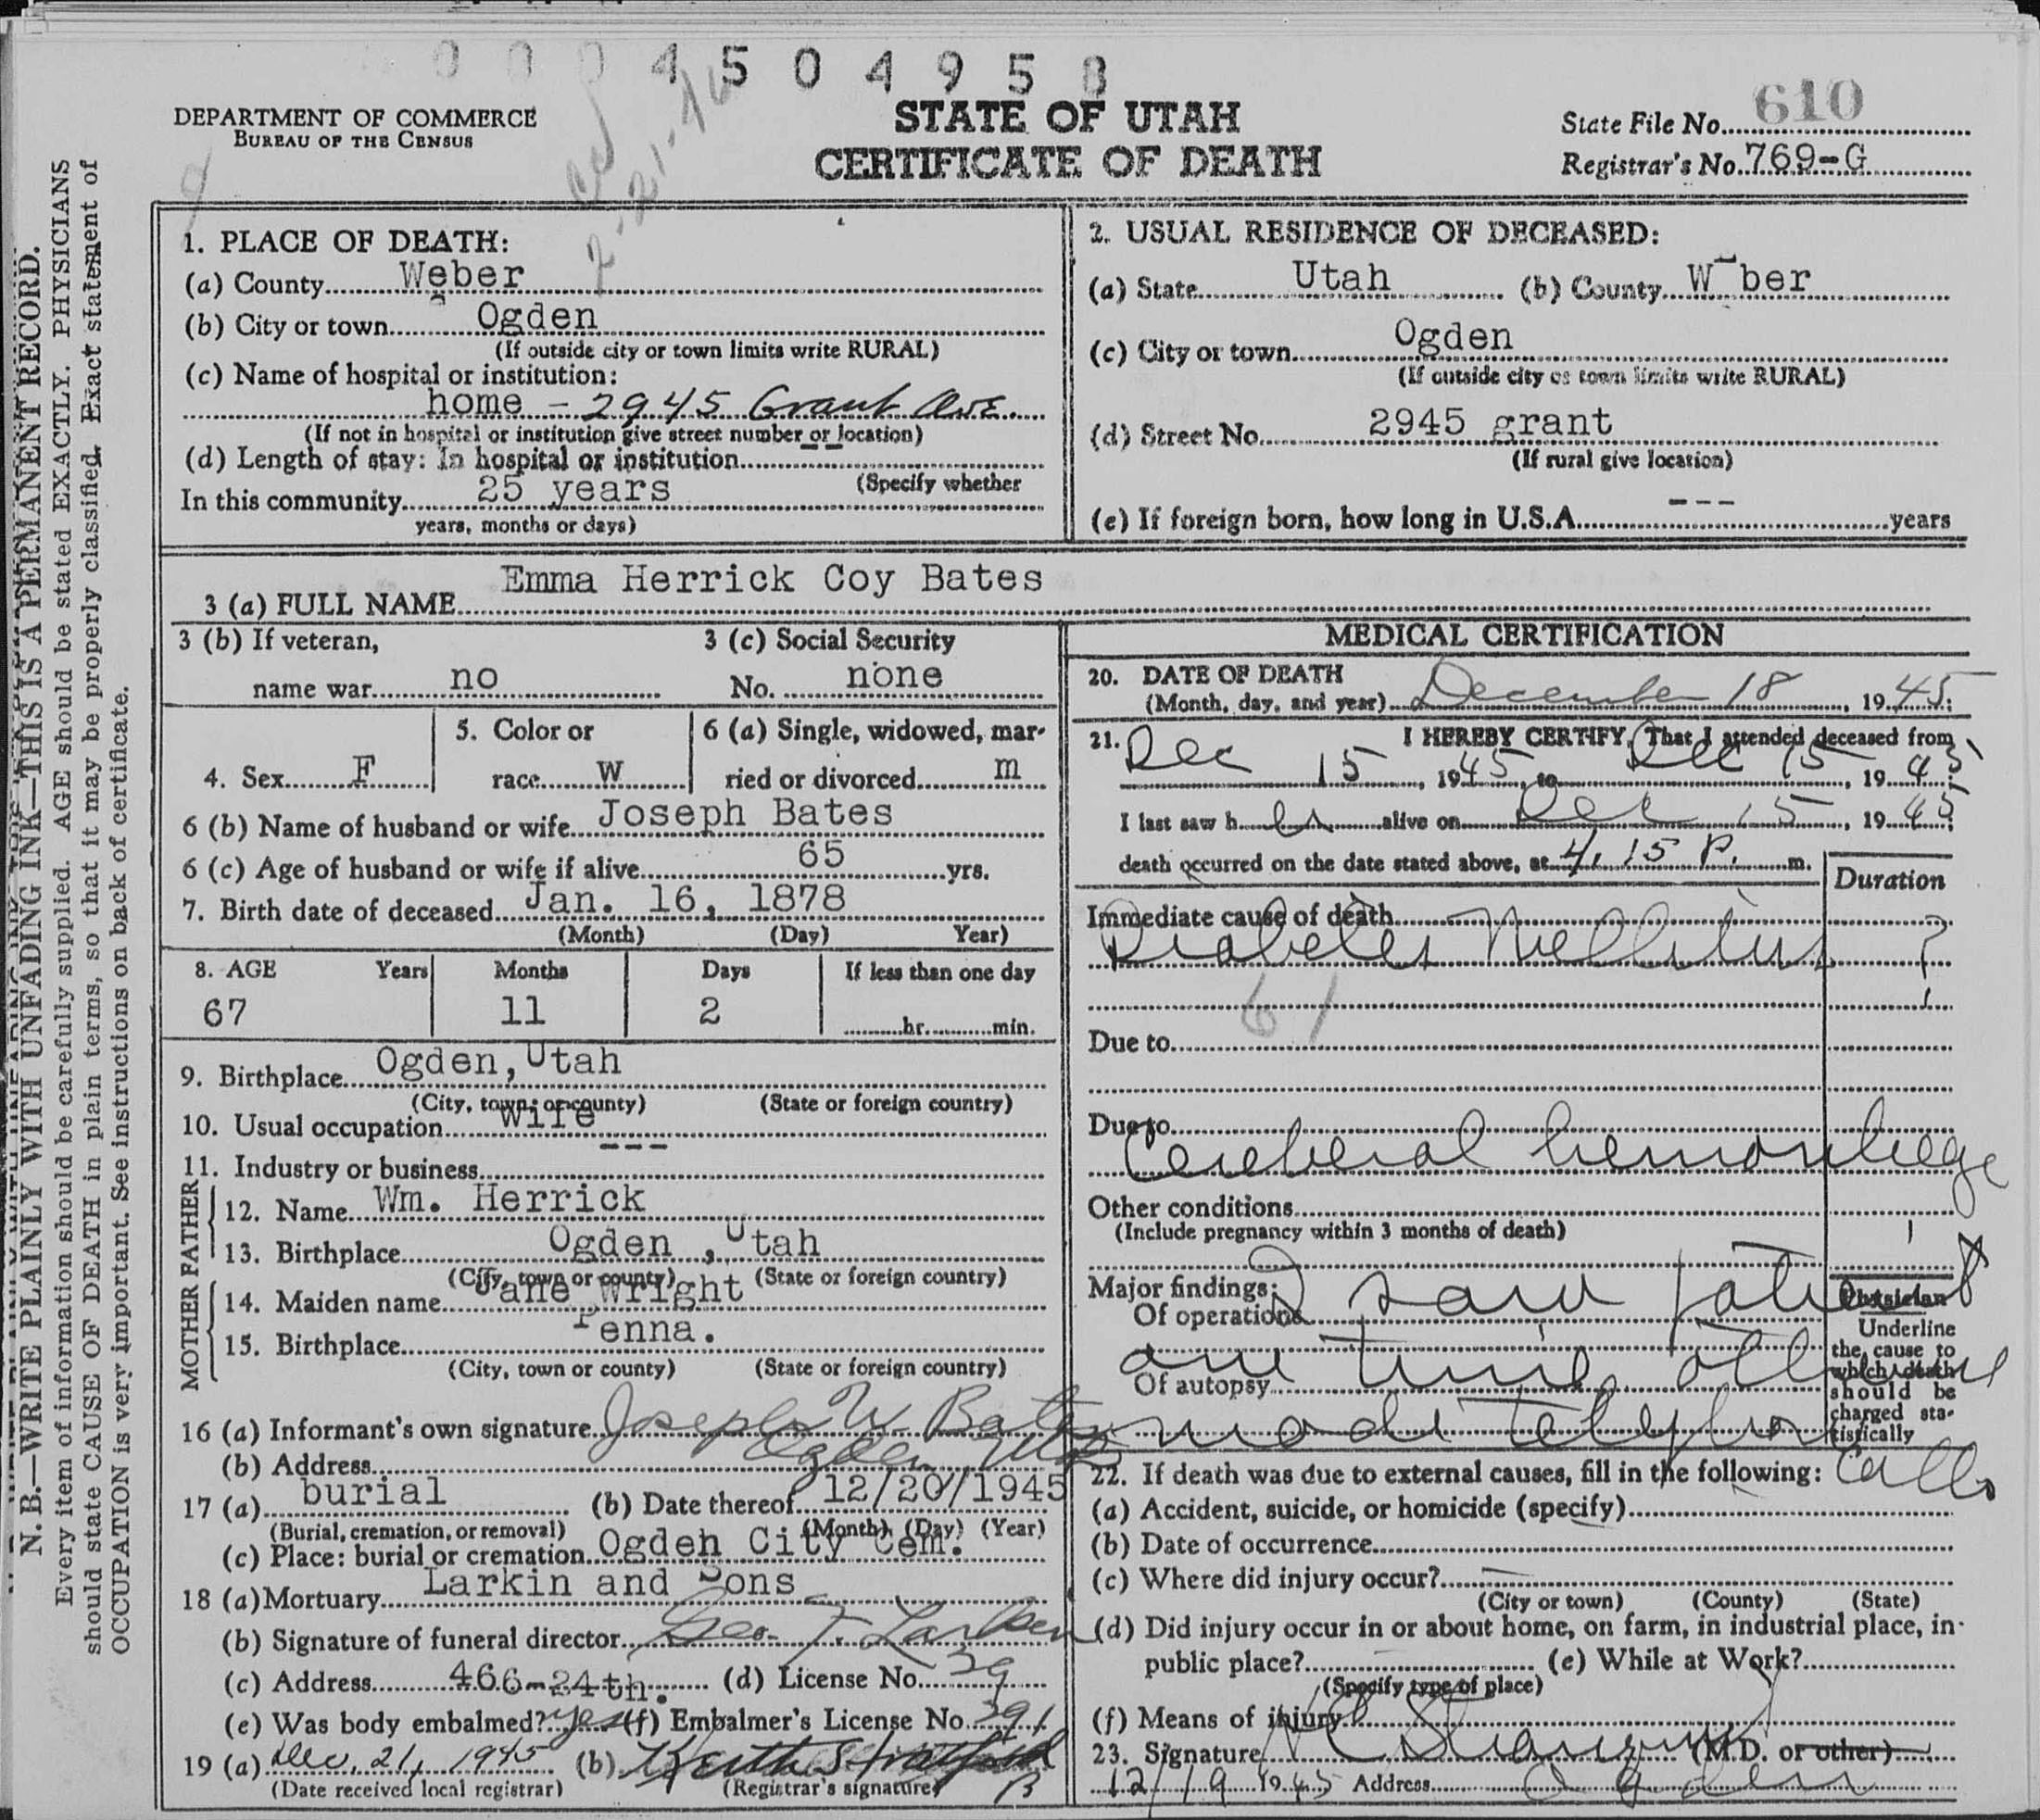 0 0 0 4 5 0 4 9 5 8
DEPARTMENT OF COMMERCE
BUREAU OF THE CENSUS
STATE OF UTAH
CERTIFICATE OF DEATH
State File No. 610
Registrar's No. 769-G
N. B.—WRITE PLAINLY WITH UNFADING INK—THIS IS A PERMANENT RECORD.
Every item of information should be carefully supplied. AGE should be stated EXACTLY. PHYSICIANS
should state CAUSE OF DEATH in plain terms, so that it may be properly classified. Exact statement of
OCCUPATION is very important. See instructions on back of certificate.
1. PLACE OF DEATH:
(a) County Weber
(b) City or town Ogden
(If outside city or town limits write RURAL)
(c) Name of hospital or institution:
home - 2945 Grant Ave.
(If not in hospital or institution give street number or location)
(d) Length of stay: In hospital or institution
(Specify whether
In this community 25 years
years, months or days)
2. USUAL RESIDENCE OF DECEASED:
(a) State Utah (b) County W ber
(c) City or town Ogden
(If outside city or town limits write RURAL)
(d) Street No. 2945 grant
(If rural give location)
(e) If foreign born, how long in U.S.A. --- years
3 (a) FULL NAME Emma Herrick Coy Bates
3 (b) If veteran,
name war no
3 (c) Social Security
No. none
4. Sex F
5. Color or
race W
6 (a) Single, widowed, mar-
ried or divorced m
6 (b) Name of husband or wife Joseph Bates
6 (c) Age of husband or wife if alive 65 yrs.
7. Birth date of deceased Jan. 16, 1878
(Month) (Day) Year)
8. AGE Years Months Days If less than one day
67 11 2 hr. min.
9. Birthplace Ogden, Utah
(City, town, or county) (State or foreign country)
10. Usual occupation wife
11. Industry or business ---
FATHER
12. Name Wm. Herrick
13. Birthplace Ogden , Utah
(City, town or county) (State or foreign country)
MOTHER
14. Maiden name Jane Wright
15. Birthplace Penna.
(City, town or county) (State or foreign country)
16 (a) Informant's own signature Joseph W Bates
(b) Address Ogden Utah
17 (a) burial (b) Date thereof 12/20/1945
(Burial, cremation, or removal) (Month) (Day) (Year)
(c) Place: burial or cremation Ogden City Cem.
18 (a) Mortuary Larkin and Sons
(b) Signature of funeral director Geo. F. Larkin
(c) Address 466-24th. (d) License No. 39
(e) Was body embalmed? yes (f) Embalmer's License No. 391
19 (a) Dec. 21, 1945 (b) Keith
(Date received local registrar) (Registrar's signature)
MEDICAL CERTIFICATION
20. DATE OF DEATH
(Month, day, and year) December 18, 1945;
21. I HEREBY CERTIFY, That I attended deceased from
Dec 15, 1945, to Dec 15, 1945;
I last saw her alive on Dec 15, 1945;
death occurred on the date stated above, at 4.15 P. m.
Duration
Immediate cause of death
Diabetes Mellitus ?
61
Due to
Due to
Cerebral hemorrhage
Other conditions
(Include pregnancy within 3 months of death)
Major findings:
Of operations
Of autopsy
I saw patient
one time
telephone
calls
Physician
Underline
the cause to
which death
should be
charged sta-
tistically
22. If death was due to external causes, fill in the following:
(a) Accident, suicide, or homicide (specify)
(b) Date of occurrence
(c) Where did injury occur?
(City or town) (County) (State)
(d) Did injury occur in or about home, on farm, in industrial place, in
public place? (e) While at Work?
(Specify type of place)
(f) Means of injury
23. Signature (M.D. or other)
12/19 1945 Address Ogden